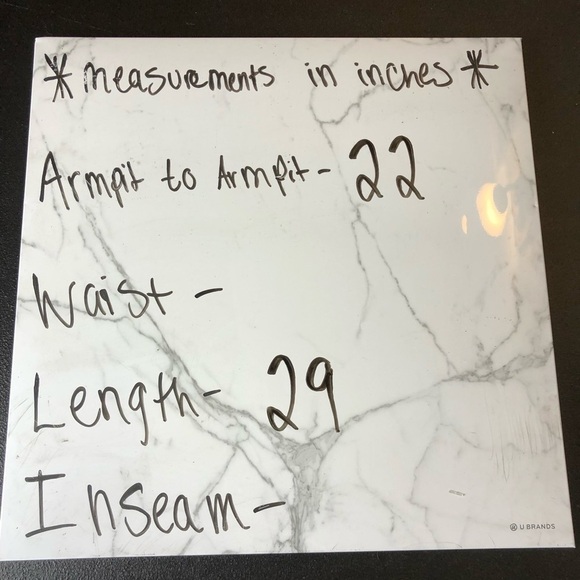 *measurements in inches*
Armpit to Armpit - 22
Waist -
Length - 29
Inseam -
U BRANDS